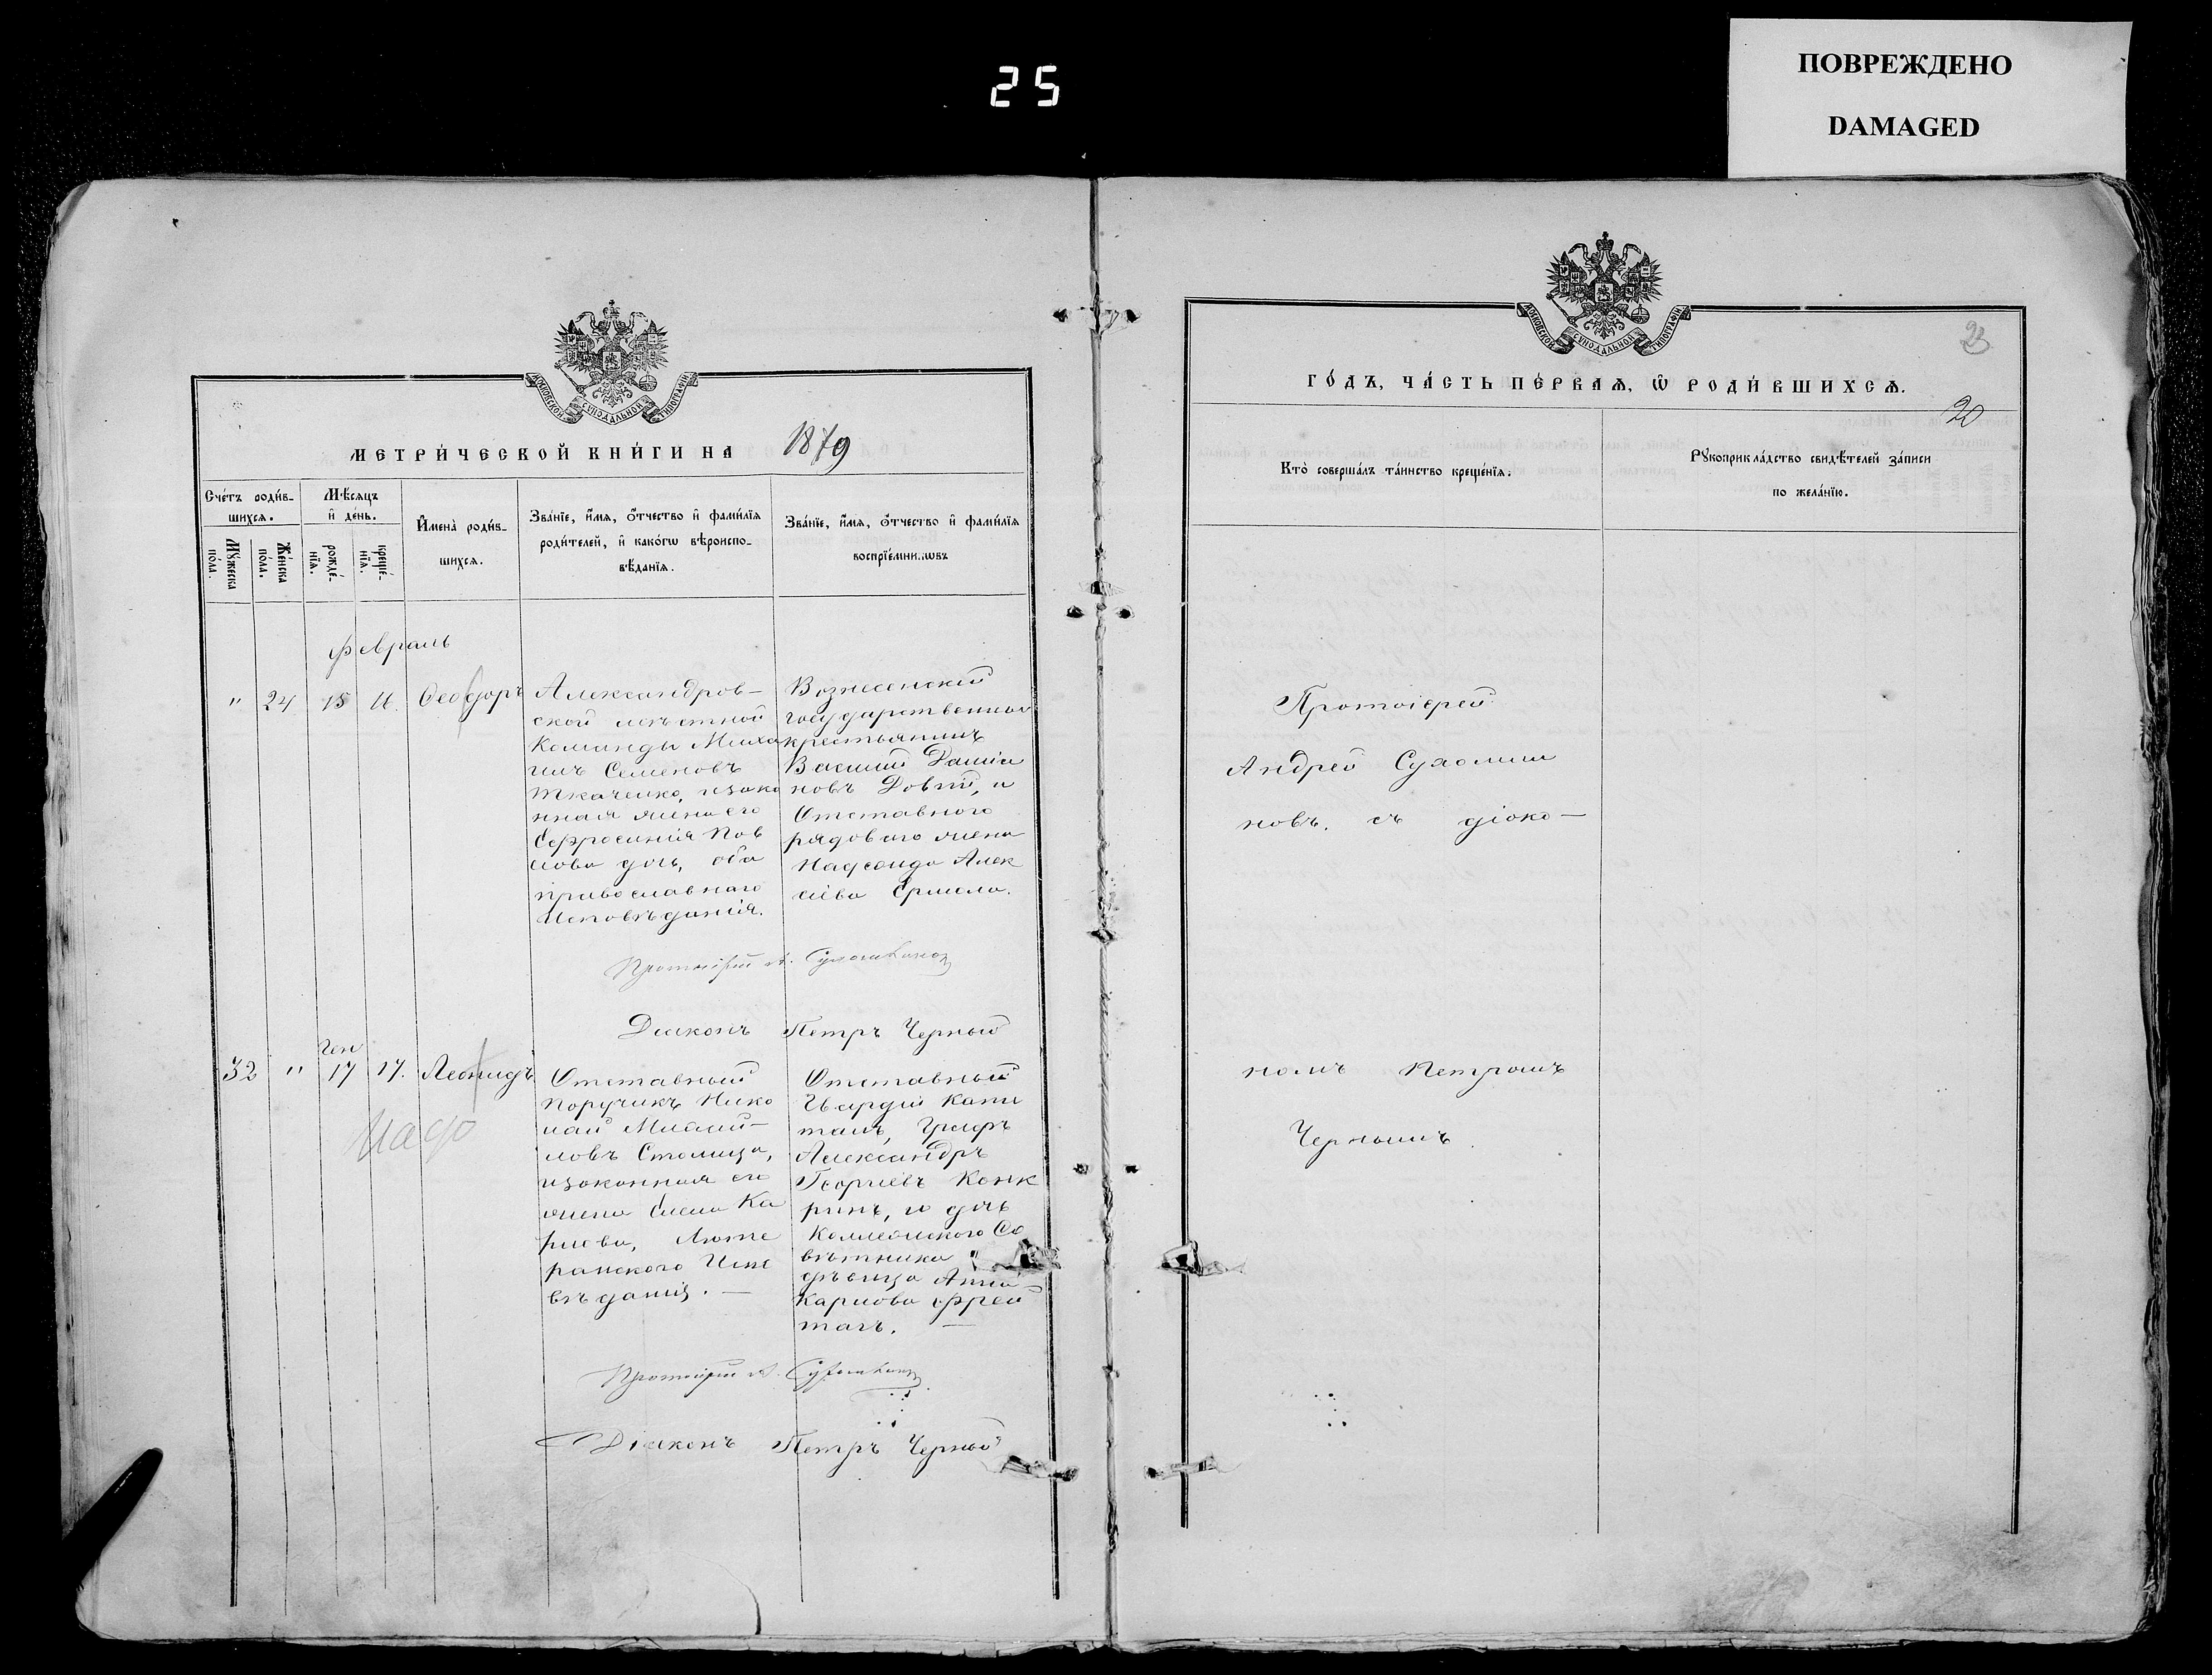 25
ПОВРЕЖДЕНО
DAMAGED
МОСКОВСКОЙ СѴНОДАЛЬНОЙ ТИПОГРАФІИ
МЕТРИ́ЧЕСКОЙ КНИ́ГИ НА 1879
Сче́тъ роди́в-
шихся.
Мꙋ́жеска по́ла.
Же́нска по́ла.
Мѣ́сяцъ
и҆ де́нь.
рожде́-
нїѧ.
креще́-
нїѧ.
И҆мена̀ роди́в-
шихся.
Зва́нїе, и҆́мя, ѻ҆́тчество и҆ фами́лїя
роди́телей, и҆ како́гѡ вѣроиспо-
вѣ́данїя.
Зва́нїе, и҆́мя, ѻ҆́тчество и҆ фами́лїя
воспрїе́мникѡвъ
Февраль
" 24 15 16. Феодоръ
Александров-
ской мѣстной
Команды Миха
илъ Семеновъ
Ткаченко, изако
нная жена его
Ефросинія Пав
лова дочь, оба
православнаго
Исповѣданія.
Вознесенскій
государственный
крестьянинъ
Василій Даміа
новъ Довгій, и
Отставного
рядового жена
Надежда Алек
сіева Ермола.
Протоіерей А. Сухомлиновъ
Діаконъ Петръ Черный
32 " Ген 17 17. Леонидъ
Отставный
Поручикъ Нико
лай Михай-
ловъ Столица,
изаконная его
жена Елена Ка
рлова, Люте
ранского Испо
вѣданія. —
Отставный
Гвардіи Капи
танъ, Графъ
Александръ
Георгіевъ Канк
ринъ, и дочь
Коллежского Со
вѣтника
дѣвица Анна
Карлова Фрей
тагъ. —
Надо
Протоіерей А. Сухомлиновъ
Діаконъ Петръ Черный
МОСКОВСКОЙ СѴНОДАЛЬНОЙ ТИПОГРАФІИ
23
ГО́ДЪ, ЧА́СТЬ ПЕ́РВАѦ, Ѽ РОДИ́ВШИХСѦ.
20
Кто̀ соверша́лъ та́инство креще́нїя.
Рꙋкоприкла́дство свидѣ́телей за́писи
по жела́нїю.
Протоіерей
Андрей Сухомли
новъ. съ діако-
номъ Петромъ
Чернымъ.